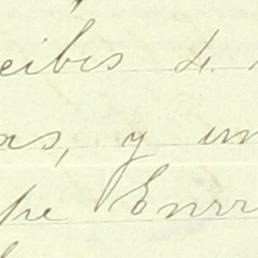 ecibes 4.
as, y un
pe Enrr